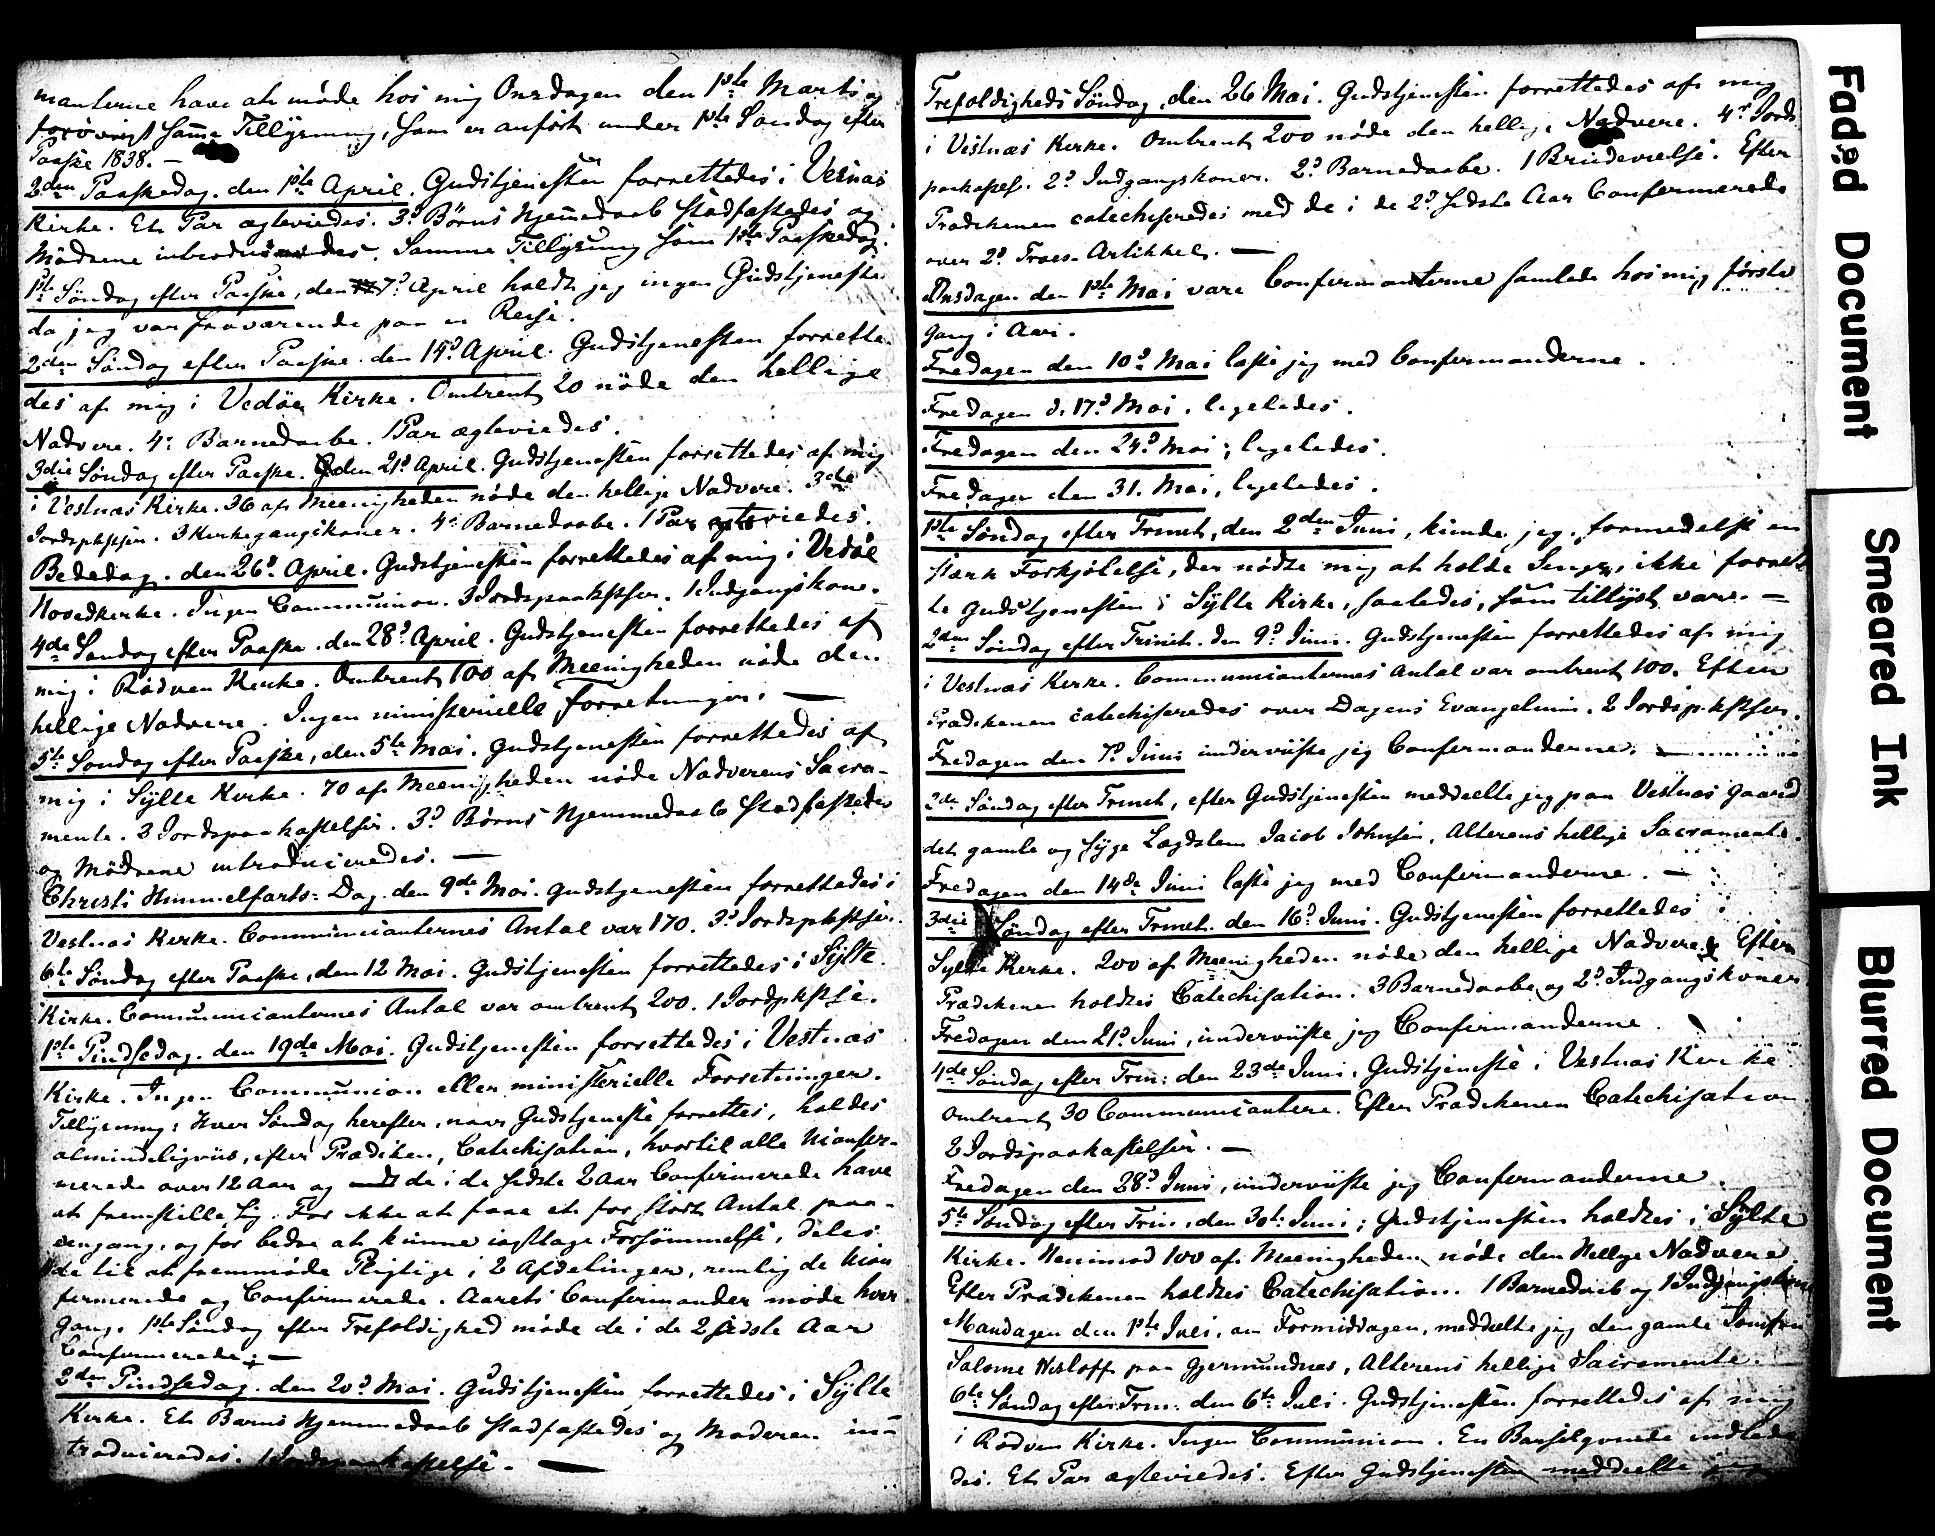 manterne have at møde hos mig Onsdagen den 1ste Marts og
forøvrigt samme Tillysning, som er anført under 1ste Søndag efter
Paaske 1838. —
2den Paaskedag. den 1ste April. Gudstjenesten forrettedes i Vesnæs
Kirke. Et Par ægteviedes. 3de Børns Hjemmedaab stadfæstedes og
Mødrene introduceredes. Samme Tillysning som 1ste Paaskedag.
1ste Søndag efter Paaske, den 7de April holdt jeg ingen Gudstjeneste
da jeg var fraværende paa en Reise.
2den Søndag efter Paaske. den 14de April. Gudstjenesten forrette-
des af mig i Vedøe Kirke. Omtrent 20 nøde den hellige
Nadvere. 4re Barnedaabe. 1 Par ægteviedes.
3die Søndag efter Paaske. den 21de April. Gudstjenesten forrettedes af mig
i Vestnæs Kirke. 36 af Meenigheden nøde den hellige Nadvere. 3de
Jordpkstser. 3 Kirkegangskoner. 4re Barnedaabe. 1 Par ægteviedes.
Bededag. den 26de April. Gudstjenesten forrettedes af mig i Vedøe
Hovedkirke. Ingen Communion. 3 Jordspaakstser. 1 Indgangskone.
4de Søndag efter Paaske. den 28de April. Gudstjenesten forrettedes af
mig i Rødven Kirke. Omtrent 100 af Meenigheden nøde den
hellige Nadvere. Ingen ministerielle Forretninger. —
5te Søndag efter Paaske, den 5te Mai. Gudstjenesten forrettedes af
mig i Sylte Kirke. 70 af Meenigheden nøde Nadverens Sacra-
mente. 3 Jordspaakastelser. 3de Børns Hjemmedaab stadfæstedes
og Mødrene introduceredes. —
Christi Himmelfarts-Dag. den 9de Mai. Gudstjenesten forrettedes i
Vestnæs Kirke. Communicanternes Antal var 170. 3de Jordspkstser.
6te Søndag efter Paaske, den 12 Mai. Gudstjenesten forrettedes i Sylte
Kirke. Communicanternes Antal var omtrent 200. 1 Jordpkstse.
1ste Pindsedag. den 19de Mai. Gudstjenesten forrettedes i Vestnæs
Kirke. Ingen Communion eller ministerielle Forretninger.
Tillysning: Hver Søndag herefter, naar Gudstjeneste forrettes, holdes
almindeligviis, efter Prædiken, Catechisation, hvortil alle Uconfir-
merede over 12 Aar og de i de sidste 2 Aar Confirmerede have
at fremstille sig. For ikke at faae et for stort Antal paa
eengang, og for bedre at kunne iagttage Forsømmelse, deles
de til at fremmøde Pligtige i 2 Afdelinger, nemlig de Ucon
firmerede og Confirmerede. Aarets Confirmander møde hver
Gang. 1ste Søndag efter Trefoldighed møde de i de 2 sidste Aar
Confirmerede. —
2den Pindsedag. den 20de Mai. Gudstjenesten forrettedes i Sylte
Kirke. Et Barns Hjemmedaab stadfæstedes og Moderen in-
troduceredes. 1 Jordspaakastelse. —
Trefoldigheds Søndag, den 26 Mai. Gudstjenesten forrettedes af mig
i Vestnæs Kirke. Omtrent 200 nøde den hellige Nadvere. 4re Jords
paakastels. 2de Indgangskoner. 2de Barnedaabe. 1 Brudevielse. Efter
Prædikenen catechiseredes med de i de 2de sidste Aar Confirmerede
over 2den Troes-Artikkel. —
Onsdagen den 1ste Mai vare Confirmanterne samlede hos mig første
Gang i Aar.
Fredagen den 10de Mai læste jeg med Confirmanderne.
Fredagen d. 17de Mai. ligeledes.
Fredagen den 24de Mai; ligeledes.
Fredagen den 31. Mai, ligeledes.
1ste Søndag efter Trinit, den 2den Juni, kunde jeg, formedelst en
stærk Forkjølelse, der nødte mig at holde Sengen, ikke forret
te Gudstjenesten i Sylte Kirke, saaledes, som tillyst var. —
2den Søndag efter Trinit. den 9de Juni. Gudstjenesten forrettedes af mig
i Vestnæs Kirke. Communicanternes Antal var omtrent 100. Efter
Prædikenen catechiseredes over Dagens Evangelium. 2 Jordsp.kstser.
Fredagen den 7de Juni underviiste jeg Confirmanderne. —
2den Søndag efter Trinit, efter Gudstjenesten meddeelte jeg paa Vestnæs Gaard
det gamle og syge Lægdslem Jacob Johnsen, Alterens hellige Sacramente.
Fredagen den 14de Juni læste jeg med Confirmanderne. —
3die Søndag efter Trinit. den 16de Juni. Gudstjenesten forrettedes i
Sylte Kirke. 200 af Meenigheden nøde den hellige Nadvere. Efter
Prædikenen holdtes Catechisation. 3 Barnedaabe og 2de Indgangskoner.
Fredagen den 21de Juni, underviiste jeg Confirmanderne.
4de Søndag efter Trin: den 23de Juni. Gudstjeneste i Vestnæs Kirke
Omtrent 30 Communicantere. Efter Prædikenen Catechisation.
2 Jordspaakastelser. —
Fredagen den 28de Juni, underviiste jeg Confirmanderne.
5te Søndag efter Trin, den 30te Juni; Gudstjenesten holdtes i Sylte
Kirke. Henimod 100 af Meenigheden nøde den Hellige Nadvere
Efter Prædikenen holdtes Catechisation. 1 Barnedaab og 1 Indgangskone
Mandagen den 1ste Juli, om Formiddagen, meddeelte jeg den gamle Jomfru
Salome Wisloff paa Gjermundnæs, Alterens hellige Sacramente.
6te Søndag efter Trin: den 6te Juli. Gudstjenesten forrettedes af mig
i Rødven Kirke. Ingen Communion. En Barselqvinde indlede
des. Et Par ægteviedes. Efter Gudstjenesten meddeelte jeg
Faded Document
Smeared Ink
Blurred Document